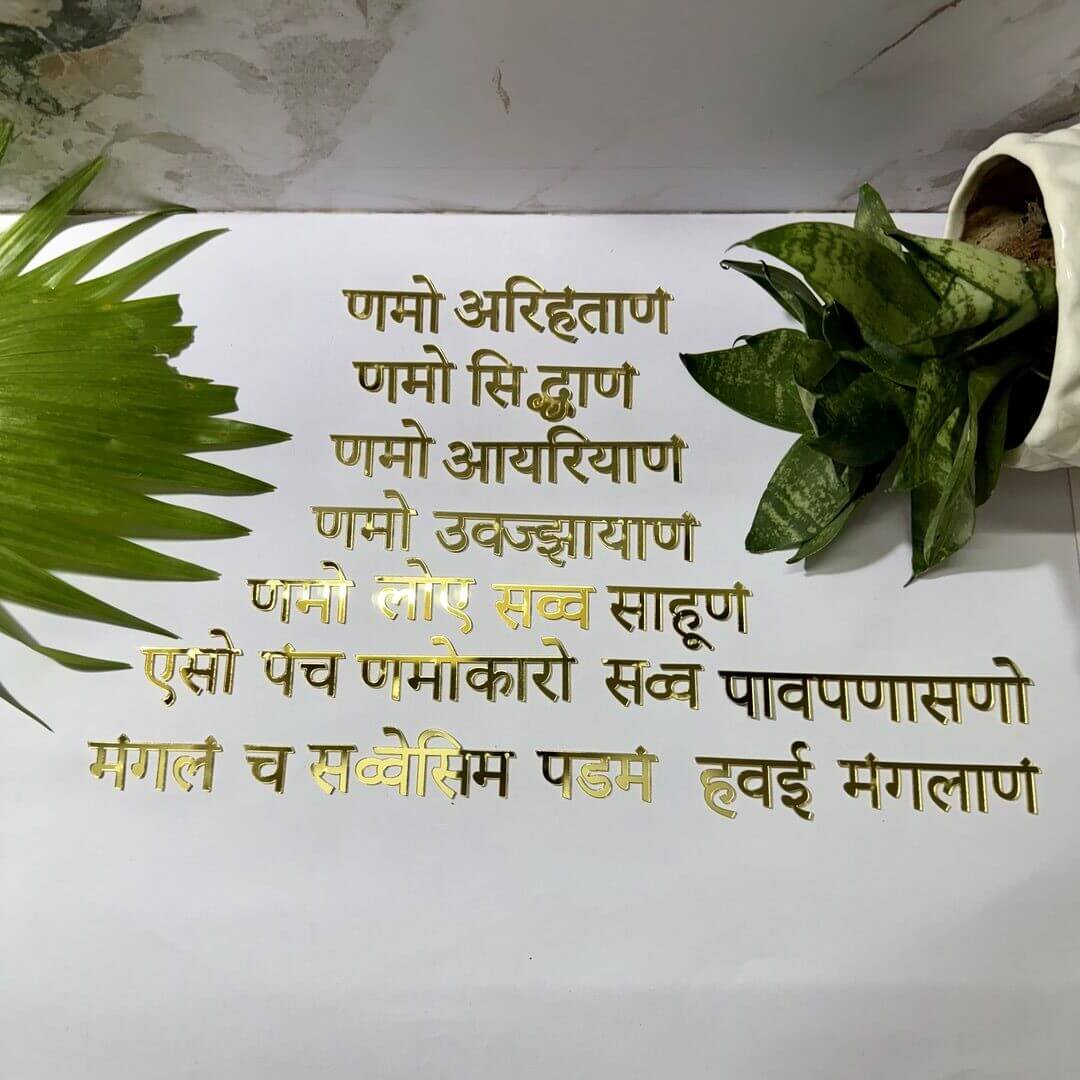 णमो अरिहंताणं
णमो सिद्धाणं
णमो आयरियाणं
णमो उवज्झायाणं
णमो लोए सव्व साहूणं
एसो पंच णमोकारो सव्व पावपणासणो
मंगलं च सव्वेसिम पडमं हवई मंगलाणं